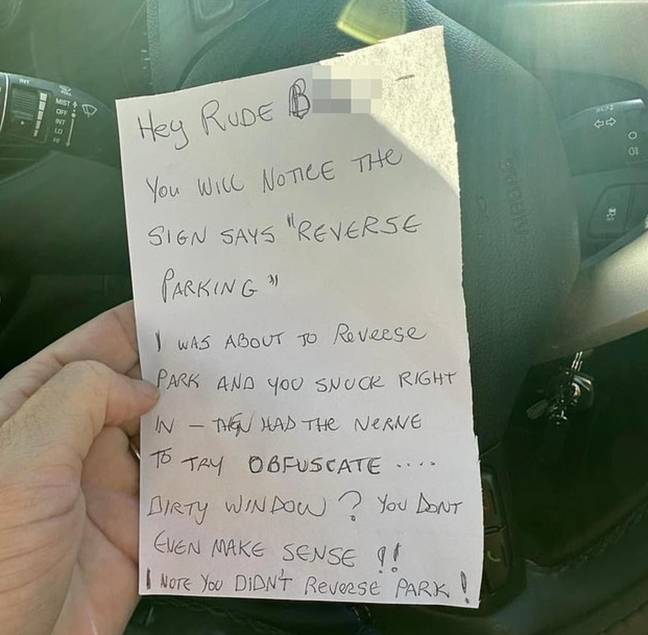 Hey RUDE B
YOU WILL NOTICE THE
SIGN SAYS "REVERSE
PARKING"
I WAS ABOUT TO Reverse
PARK AND YOU SNUCK RIGHT
IN – THEN HAD THE NERVE
TO TRY OBFUSCATE ....
DIRTY WINDOW? YOU DONT
EVEN MAKE SENSE !!
I NOTE YOU DIDN'T REVERSE PARK!
MIST
OFF
INT
LO
HI